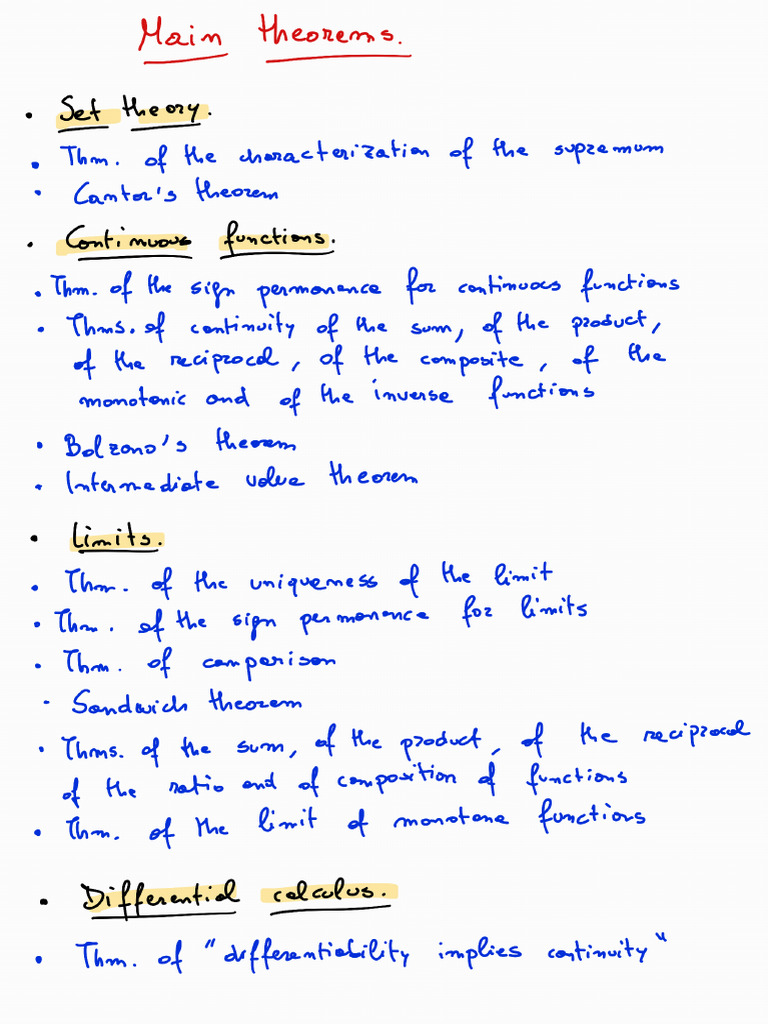 Main theorems.
• Set theory.
• Thm. of the characterization of the supremum
• Cantor's theorem
• Continuous functions.
• Thm. of the sign permanence for continuous functions
• Thms. of continuity of the sum, of the product,
of the reciprocal, of the composite, of the
monotonic and of the inverse functions
• Bolzano's theorem
• Intermediate value theorem
• Limits.
• Thm. of the uniqueness of the limit
• Thm. of the sign permanence for limits
• Thm. of comparison
• Sandwich theorem
• Thms. of the sum, of the product, of the reciprocal
of the ratio and of composition of functions
• Thm. of the limit of monotone functions
• Differential calculus.
• Thm. of "differentiability implies continuity"